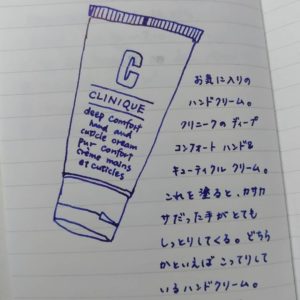 C
CLINIQUE
deep comfort
hand and
cuticle cream
pur confort
crème mains
et cuticles
お気に入りの
ハンドクリーム。
クリニークのディープ
コンフォート ハンド&
キューティクル クリーム。
これを塗ると、カサカ
サだった手がとても
しっとりしてくる。どちら
かといえば こってりして
いるハンドクリーム。